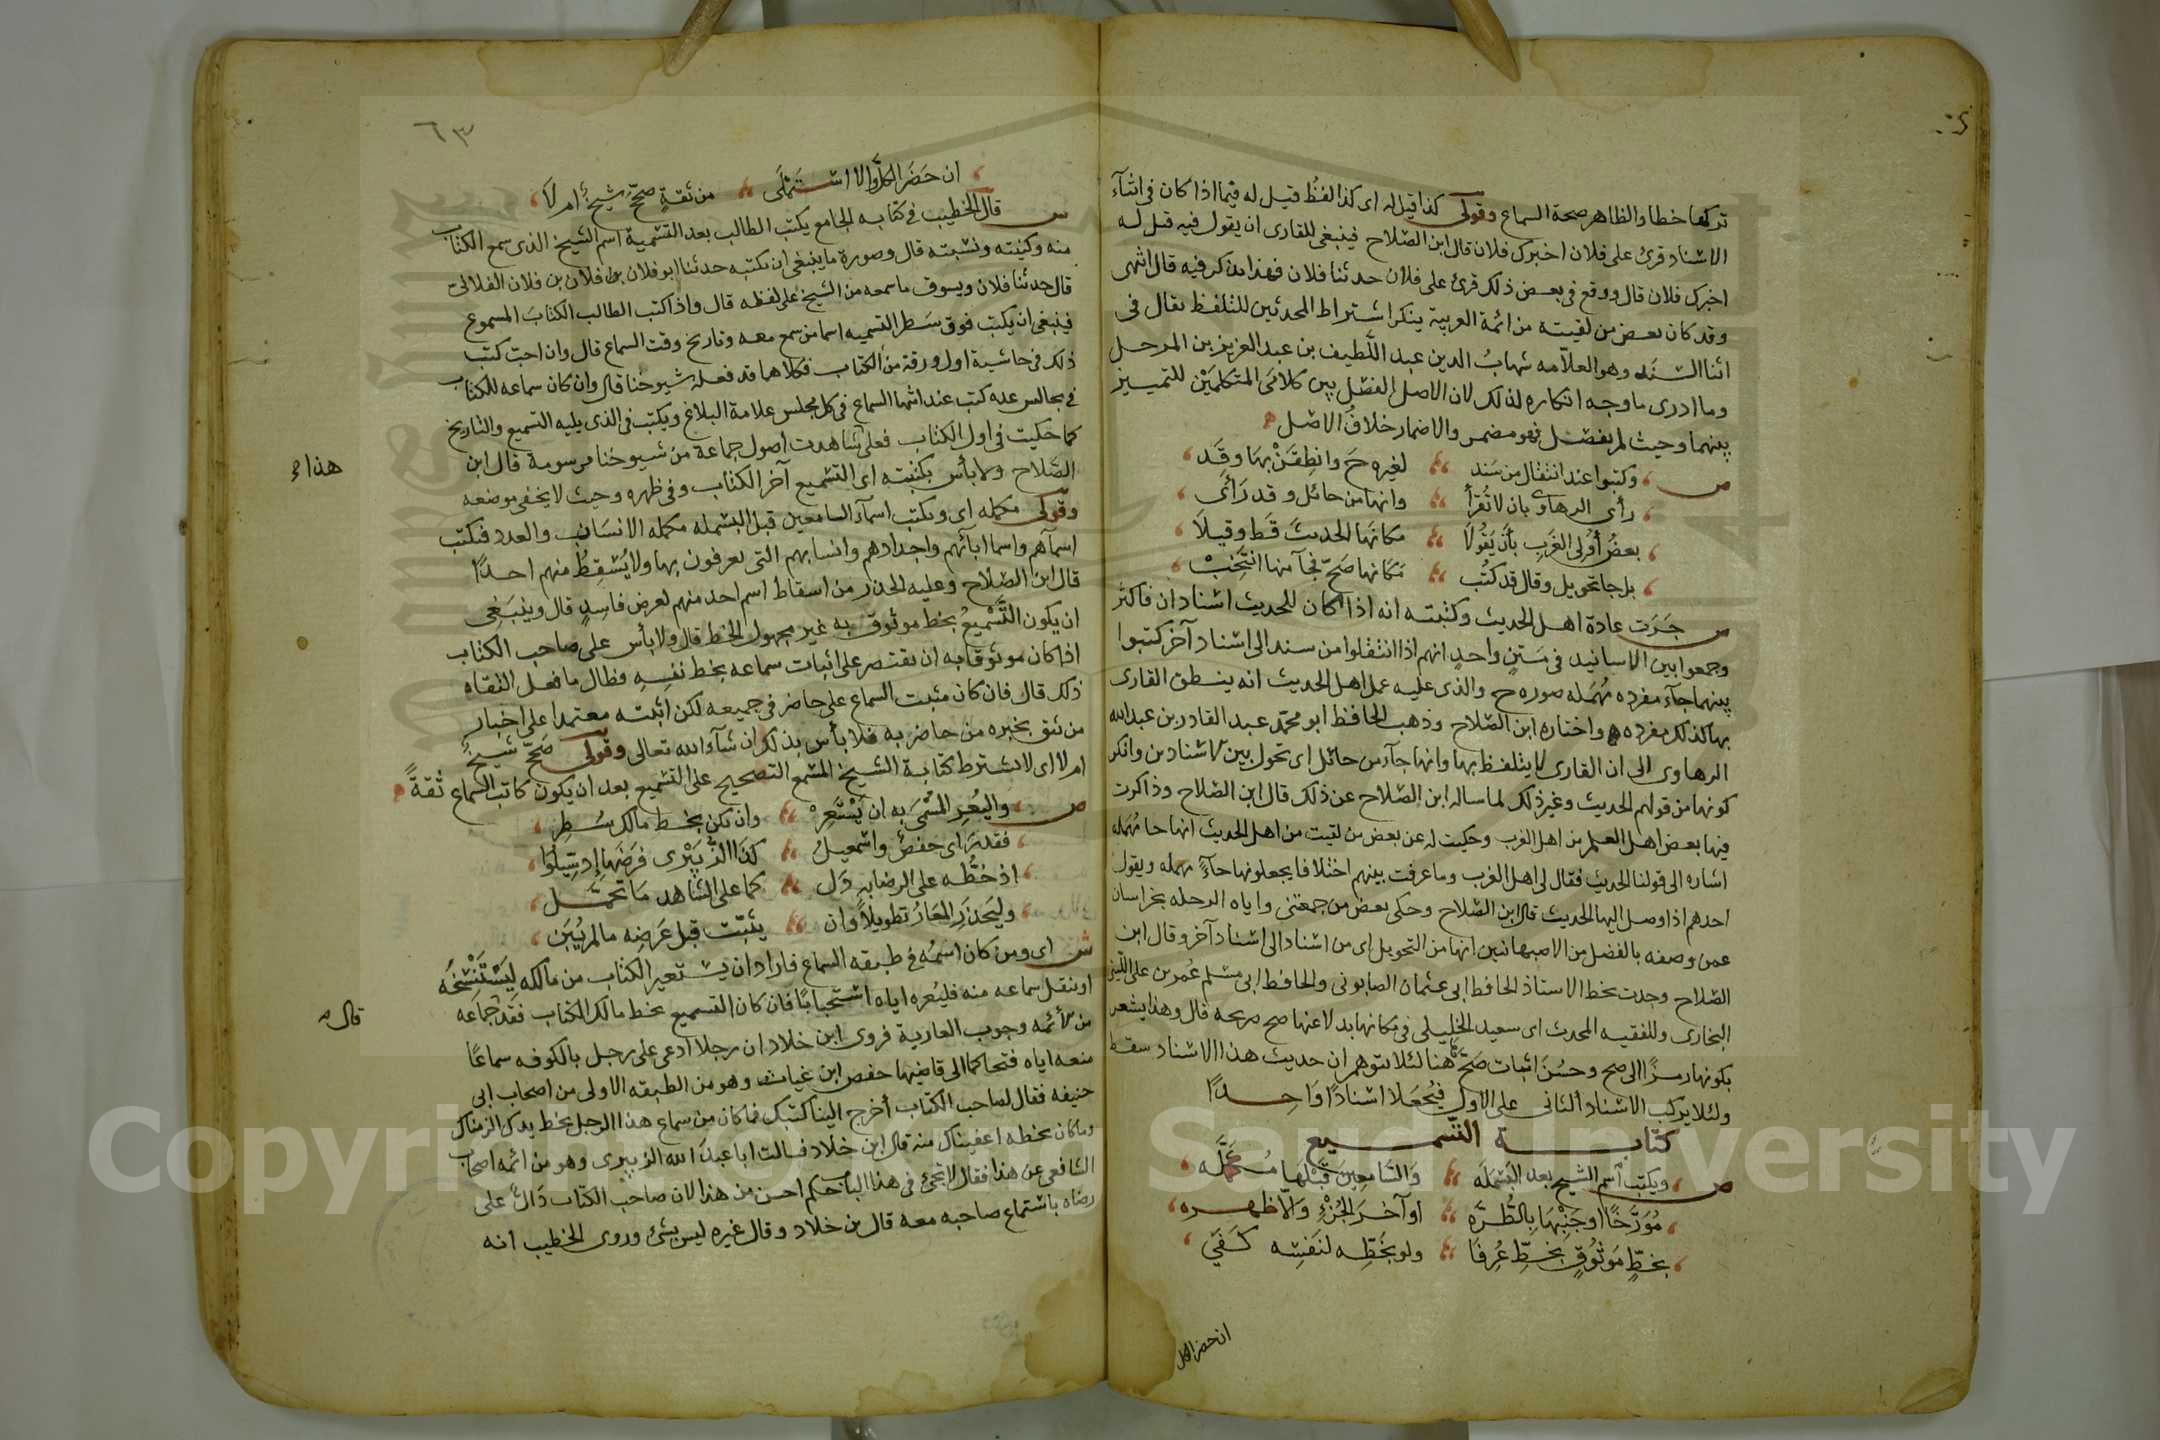 تركها خطا والظاهر صحة السماع وقولي كذا قيل له اى كذا لفظ قيل له فيما اذا كان فى اثناء
الاسناد قرئ على فلان اخبرك فلان قال ابن الصلاح فينبغى للقارى ان يقول فيه قيل له
اخبرك فلان قال ووقع فى بعض ذلك قرئ على فلان حدثنا فلان فهذا يذكر فيه قال انتهى
وقد كان بعض من لقيته من ائمة العربية ينكر اشتراط المحدثين للتلفظ بقال فى
اثنا السند وهو العلامه شهاب الدين عبد اللطيف بن عبد العزيز بن المرحل
وما ادرى ما وجه انكاره لذلك لان الاصل الفصل بين كلامى المتكلمين للتمييز
بينهما وحيث لم يفصل فهو مضمر والاضمار خلاف الاصل
ص وكتبوا عند انتقال من سند لغيره ح وانطقن بها وقد
رأى الرهاوى بان لا تقرأ وانها من حائل وقد رأى
بعض أولى الغرب بأن يقولا مكانها الحديث قط وقيلا
بل حا تحويل وقال قد كتب مكانها صح فحا منها انتخب
ش جرت عادة اهل الحديث وكتبته انه اذا كان للحديث اسنادان فاكثر
وجمعوا بين الاسانيد فى متن واحد انهم اذا انتقلوا من سند الى اسناد آخر كتبوا
بينهما حآء مفرده مهمله صوره ح والذى عليه عمل اهل الحديث انه ينطق القارى
بها كذلك مفرده واختاره ابن الصلاح وذهب الحافظ ابو محمد عبد القادر بن عبد الله
الرهاوى الى ان القارى لا يتلفظ بها وانها حآء من حائل اى تحول بين الاسنادين وانكر
كونها من قولهم الحديث وغير ذلك لما ساله ابن الصلاح عن ذلك قال ابن الصلاح وذاكرت
فيها بعض اهل العلم من اهل الغرب وحكيت له عن بعض من لقيت من اهل الحديث انها حا مهمله
اشاره الى قولنا الحديث فقال لى اهل الغرب وما عرفت بينهم اختلافا يجعلونها حآء مهمله ويقول
احدهم اذا وصل اليها الحديث قال ابن الصلاح وحكى بعض من جمعتنى واياه الرحله بخراسان
عمن وصفه بالفضل من الاصبهانيين انها من التحويل اى من اسناد الى اسناد آخر وقال ابن
الصلاح وجدت بخط الاستاذ الحافظ ابى عثمان الصابونى والحافظ ابى مسلم عمر بن على الليثى
البخارى وللفقيه المحدث اى سعيد الخليلى فى مكانها بدلا عنها صح صريحه قال وهذا يشعر
بكونها رمزا الى صح وحسن اثبات صح هنا لئلا يتوهم ان حديث هذا الاسناد سقط
ولئلا يركب الاسناد الثانى على الاول فيجعلا اسنادا واحدا
كتابة التسميع
ص ويكتب اسم الشيخ بعد البسمله والسامعين قبلها مكمله
مؤرخا او جنبها بالطره او آخر الجزء والا ظهره
بخط موثوق بخط عرفا ولو بخطه لنفسه كفى
ان حضر الكل
٦٣
ان حضر الكل والا استملى من ثقة صحح شيخ ام لا
ش قال الخطيب فى كتابه الجامع يكتب الطالب بعد التسمية اسم الشيخ الذى سمع الكتاب
منه وكنيته ونسبته قال وصورة ما ينبغى ان يكتبه حدثنا ابو فلان بن فلان بن فلان الفلانى
قال حدثنا فلان ويسوق ما سمعه من الشيخ على لفظه قال واذا كتب الطالب الكتاب المسموع
فينبغى ان يكتب فوق سطر التسميه اسما من سمع معه وتاريخ وقت السماع قال وان احب كتب
ذلك فى حاشية اول ورقة من الكتاب فكلاهما قد فعله شيوخنا قال وان كان سماعه للكتاب
فى مجالس عده كتب عند انتها السماع فى كل مجلس علامة البلاغ ويكتب فى الذى يليه التسميع والتاريخ
كما حكيت فى اول الكتاب فعلى شاهدت اصول جماعة من شيوخنا مرسومة قال ابن
هذا
الصلاح ولا بأس بكتبته اى التسميع آخر الكتاب وفى ظهره وحيث لا يخفى موضعه
وقولي مكمله اى ويكتب اسمآء السامعين قبل البسمله مكمله الانساب والعدد فيكتب
اسمآهم واسما ابائهم واجدادهم وانسابهم التى يعرفون بها ولا يسقط منهم احدا
قال ابن الصلاح وعليه الحذر من اسقاط اسم احد منهم لغرض فاسد قال وينبغى
ان يكون التسميع بخط موثوق به غير مجهول الخط قال ولا بأس على صاحب الكتاب
اذا كان موثوقا به ان يقتصر على اثبات سماعه بخط نفسه فطال ما فعل الثقاه
ذلك قال فان كان مثبت السماع على حاضر فى جميعه لكن اثبته معتمدا على اخبار
من يثق بخبره من حاضريه فلا بأس بذلك ان شآء الله تعالى وقولي صح شيخ
ام لا اى لا يشترط كتابة الشيخ المسمع التصحيح على التسميع بعد ان يكون كاتب السماع ثقة
ص وليعر المسمى به ان يستعر وان يكن بخط مالك سطر
فقد رأى حفص واسمعيل كذا الزبيرى فرضها إذ سيلوا
اذ خطه على الرضا به دل كما على الشاهد ما تحمل
وليحذر المعار تطويلا وان يثبت قبل عرضه ما لم يبن
ش اى ومن كان اسمه فى طبقه السماع فاراد ان يستعير الكتاب من مالكه ليستنسخه
او ينقل سماعه منه فليعره اياه استحبابا فان كان التسميع بخط مالك الكتاب فقد جماعه
قال
من الأئمه وجوب العارية فروى ابن خلاد ان رجلا ادعى على رجل بالكوفه سماعا
منعه اياه فتحاكما الى قاضيها حفص ابن غياث وهو من الطبقه الاولى من اصحاب ابى
حنيفه فقال لصاحب الكتاب أخرج الينا كتبك فما كان من سماع هذا الرجل بخط يدك الزمناك
وما كان بخطه اعفيناك منه قال ابن خلاد فسالت ابا عبد الله الزبيرى وهو من ائمه اصحاب
الشافعى عن هذا فقال لا يجئ فى هذا الباب حكم احسن من هذا لان صاحب الكتاب دال على
رضاه باستماع صاحبه معه قال بن خلاد وقال غيره ليس بشئ وروى الخطيب انه
Copyright © King Saud University